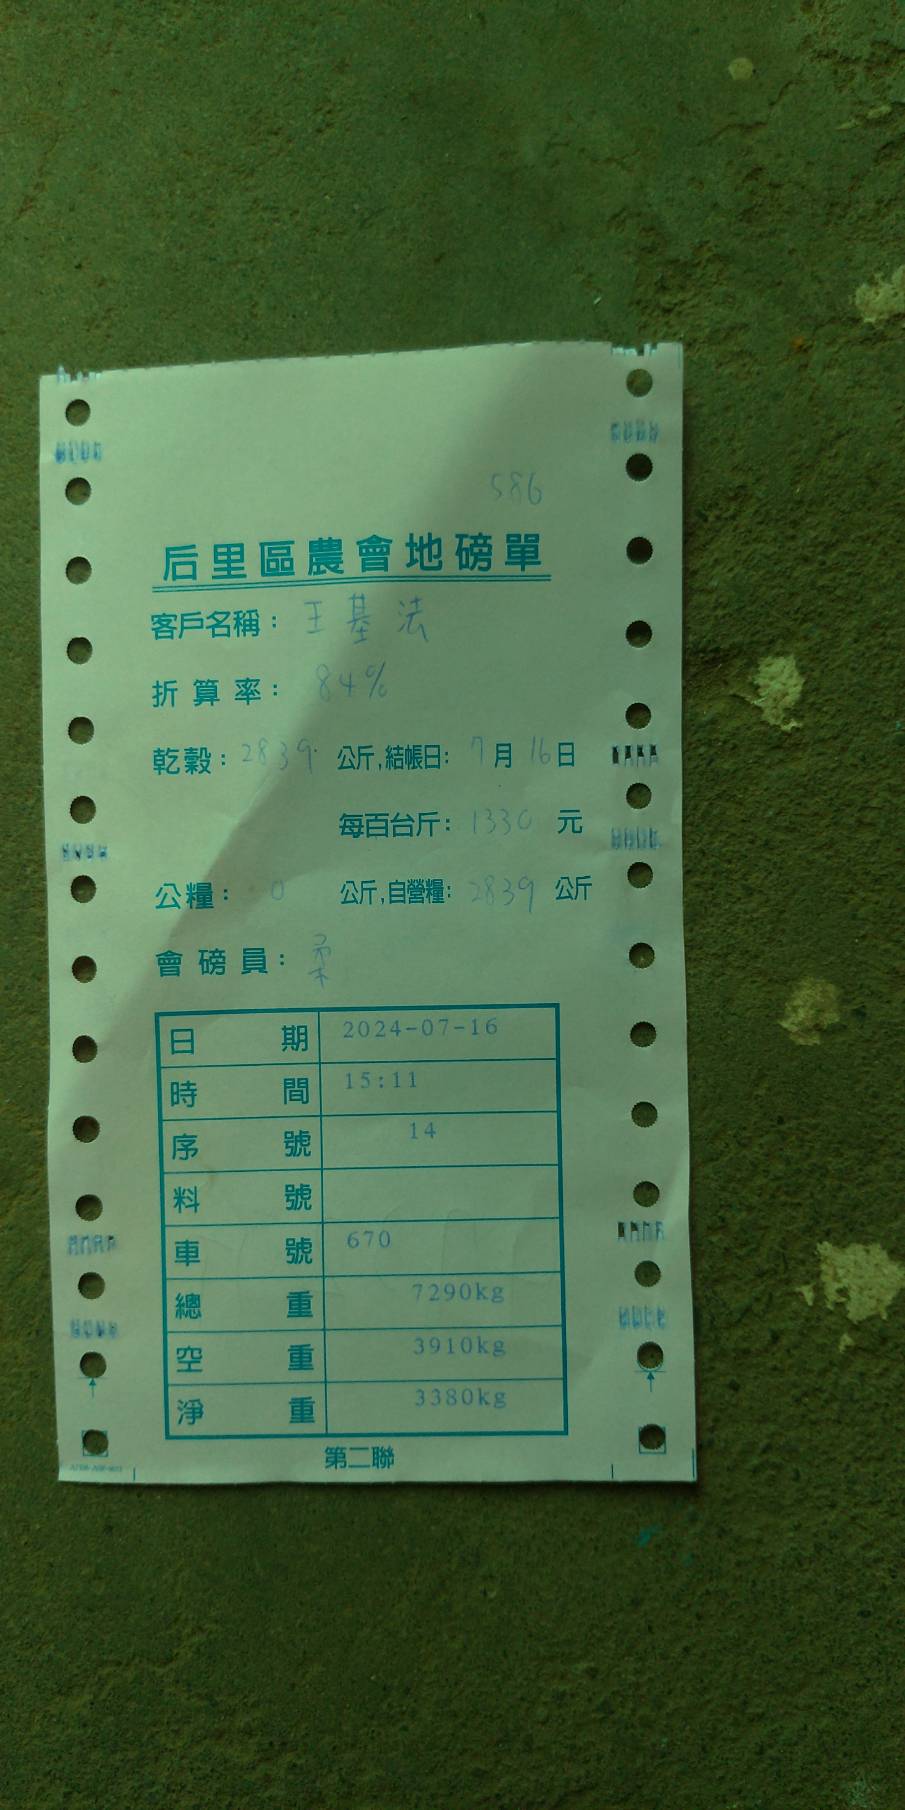 586
后里區農會地磅單
客戶名稱：王基法
折算率：84%
乾穀：2839 公斤,結帳日：7月16日
每百台斤：1330 元
公糧：0 公斤,自營糧：2839 公斤
會磅員：柔
日期 2024-07-16
時間 15:11
序號 14
料號
車號 670
總重 7290kg
空重 3910kg
淨重 3380kg
第二聯